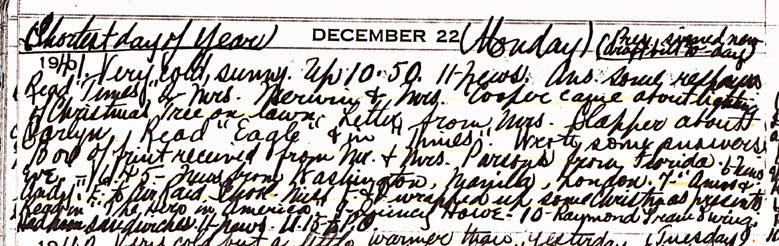 (Shortest day of Year) DECEMBER 22 (Monday) (Pres. signed new draft bill to-day
1941 Very cold, sunny. Up 10-50. 11-News. Ans. some
Read "Times" & Mrs. Merwin & Mrs. Cooper came about lighting
of Christmas Tree on lawn. Letter from Mrs. Flapper about
Carlyn. Read "Eagle" & in "Times". Wrote some answers
Box of fruit received from Mr. & Mrs. Parsons from Florida. 6-News
Eve. - 6.45 - News from Washington, Manila, London. 7- "Amos &
Andy". E. to Air Raid 8- wrapped up some Christmas presents
Read in The in America. Quincy Howe - 10-Raymond Gram Swing.
Had ham sandwiches. 11-News. 11.15
1942 Very cold but a little warmer than yesterday (Tuesday)